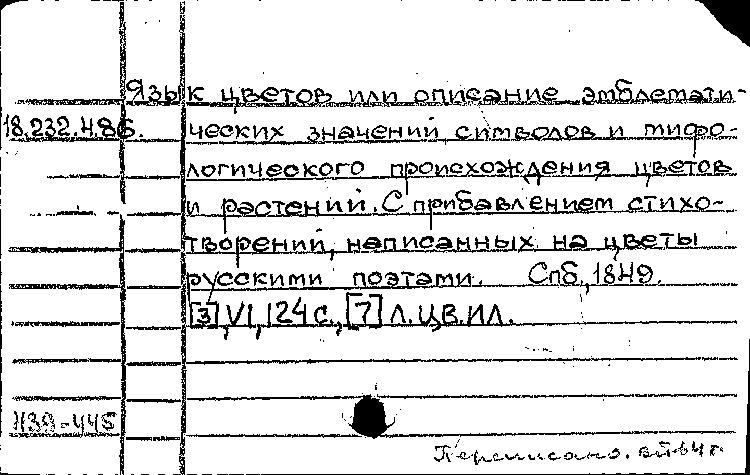 Язык цветов или описание эмблемати-
18.232.4.86. ческих значений, символов и мифо-
логического происхождения цветов
и растений. С прибавлением стихо-
творений, написанных на цветы
русскими поэтами. Спб., 1849.
[3], VI, 124 с., [7] л. цв. ил.
И39-445
Переписано.